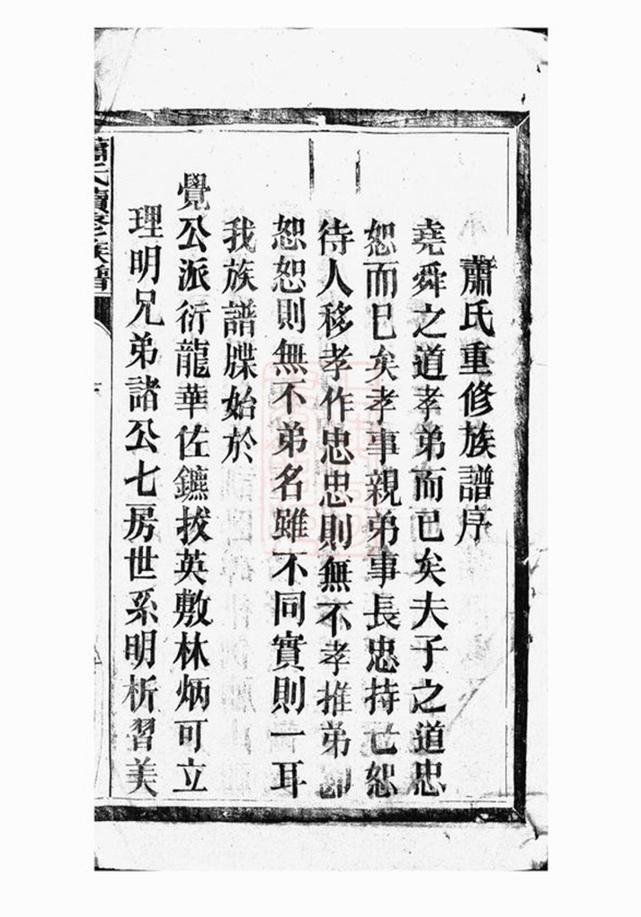 蕭氏重修族譜序
堯舜之道孝弟而已矣夫子之道忠
恕而已矣孝事親弟事長忠持己恕
待人移孝作忠忠則無不孝推弟即
恕恕則無不弟名雖不同實則一耳
我族譜牒始於
覺公派衍龍華佐鑣拔英敷林炳可立
理明兄弟諸公七房世系明析習美
蕭氏續修族譜